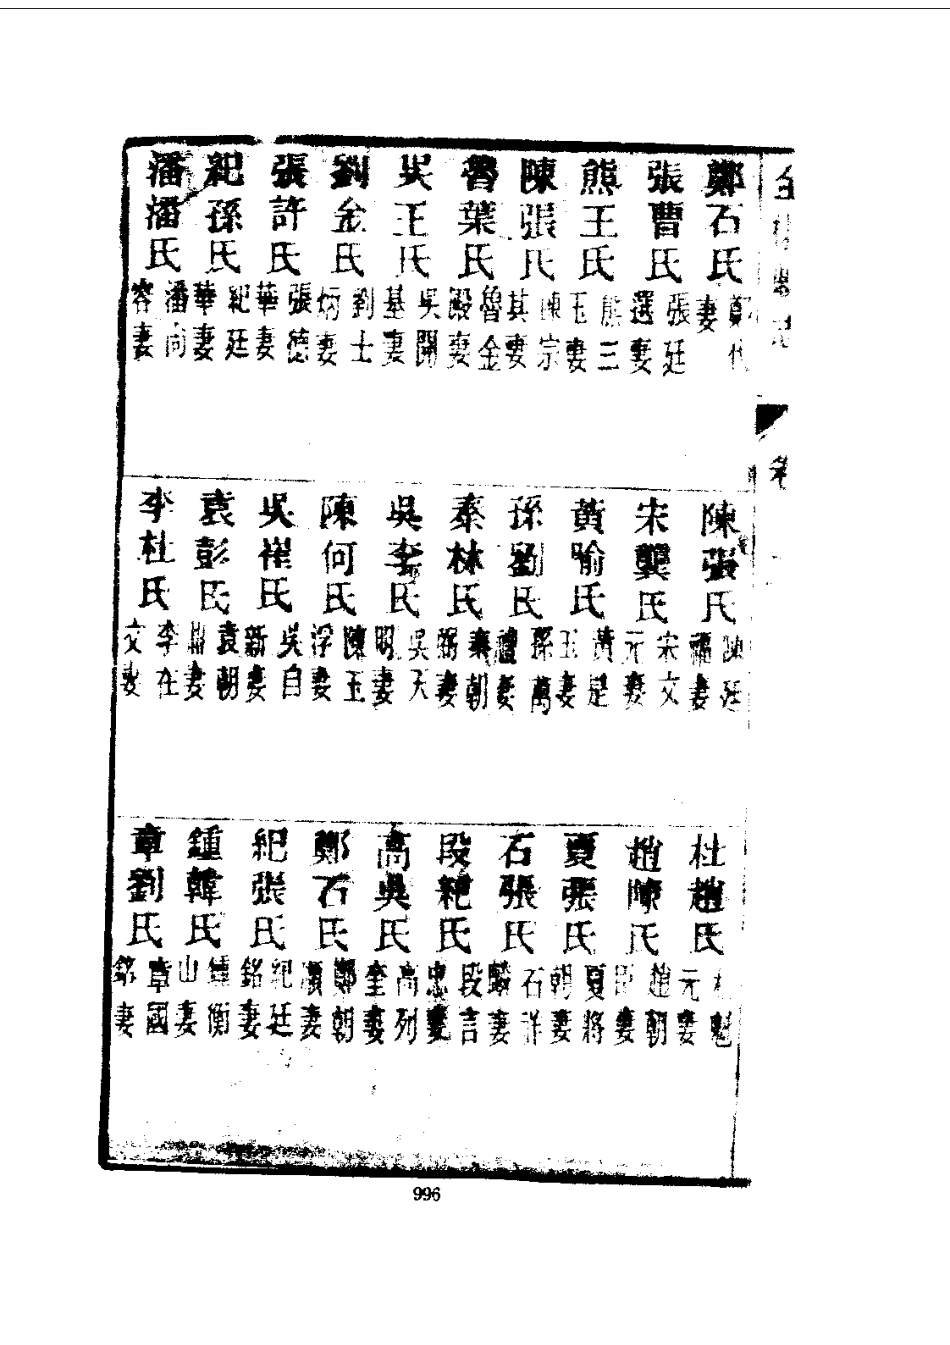 鄭石氏 鄭代妻
張曹氏 張廷選妻
熊王氏 熊三玉妻
陳張氏 陳宗其妻
魯葉氏 魯金殿妻
吳王氏 吳開基妻
劉金氏 劉士炳妻
張許氏 張德華妻
紀孫氏 紀廷華妻
潘潘氏 潘尚容妻
陳張氏 陳廷福妻
宋龔氏 宋文元妻
黃喻氏 黃是玉妻
孫劉氏 孫萬禮妻
秦林氏 秦朝妻
吳李氏 吳天明妻
陳何氏 陳玉浮妻
吳崔氏 吳自新妻
袁彭氏 袁朝妻
李杜氏 李在文妻
杜趙氏 杜魁元妻
趙陳氏 趙朝臣妻
夏張氏 夏將朝妻
石張氏 石祥麟妻
段紀氏 段言忠妻
高吳氏 高列奎妻
鄭石氏 鄭朝順妻
紀張氏 紀廷銘妻
鍾韓氏 鍾衡山妻
章劉氏 章國銘妻
996